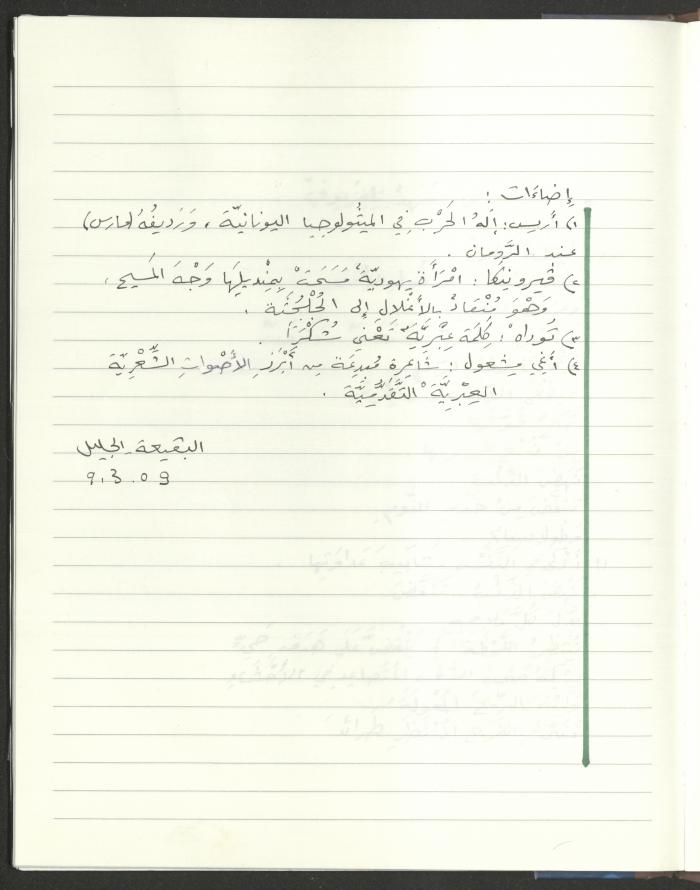 إِضاءَات :
١) أريس: إِلَهُ الحَرْبِ في الميثُولوجيا اليونانيّة ، وَرَديفُهُ (مارس)
عند الرَّومان .
٢) ڤيرونيكا : امْرَأَة يهوديّة مَسَحَتْ بِمِنْديلِهَا وَجْهَ المَسيح ،
وَهْوَ مُنْقادٌ بالأغْلال إلى الجُلْجُثَة .
٣) تُوداه : كَلِمَة عِبْريَّة تَعْني شُكْرَاً .
٤) أغي مشعول : شَاعِرة مُبدِعَة من أَبْرَزِ الأصْواتِ الشِّعْريّة
العِبْريَّة التَّقَدُّميَّة .
البقيعة - الجليل
9.3.09